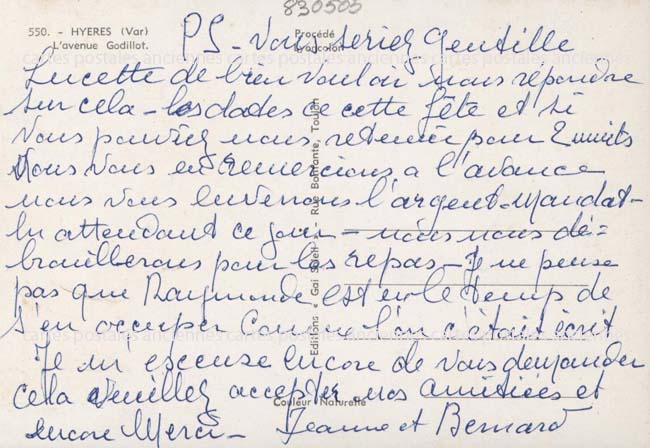 830505
550. - HYERES (Var)
L'avenue Godillot.
Procédé
Lyocolor
PS - Vous seriez gentille
Lucette de bien vouloir nous repondre
sur cela - les dades de cette fête et si
Vous pouviez nous retenir pour 2 nuits
Nous Vous en remercions a l'avance
nous vous enverrons l'argent - Mandat -
En attendant ce jour - nous nous dé=
brouillerons pour les repas - Je ne pense
pas que Raymonde est eu le temp de
s'en occuper Comme l'on c'était écrit
Je m'escuse encore de Vous demander
cela Veuillez accepter nos amitiées et
encore Merci - Jeanne et Bernard
Editions « Gai Soleil » - Rue Bonfante, Toulon
Couleur Naturelle
cartes postales anciennes cartes postales anciennes
cartes postales anciennes cartes postales anciennes